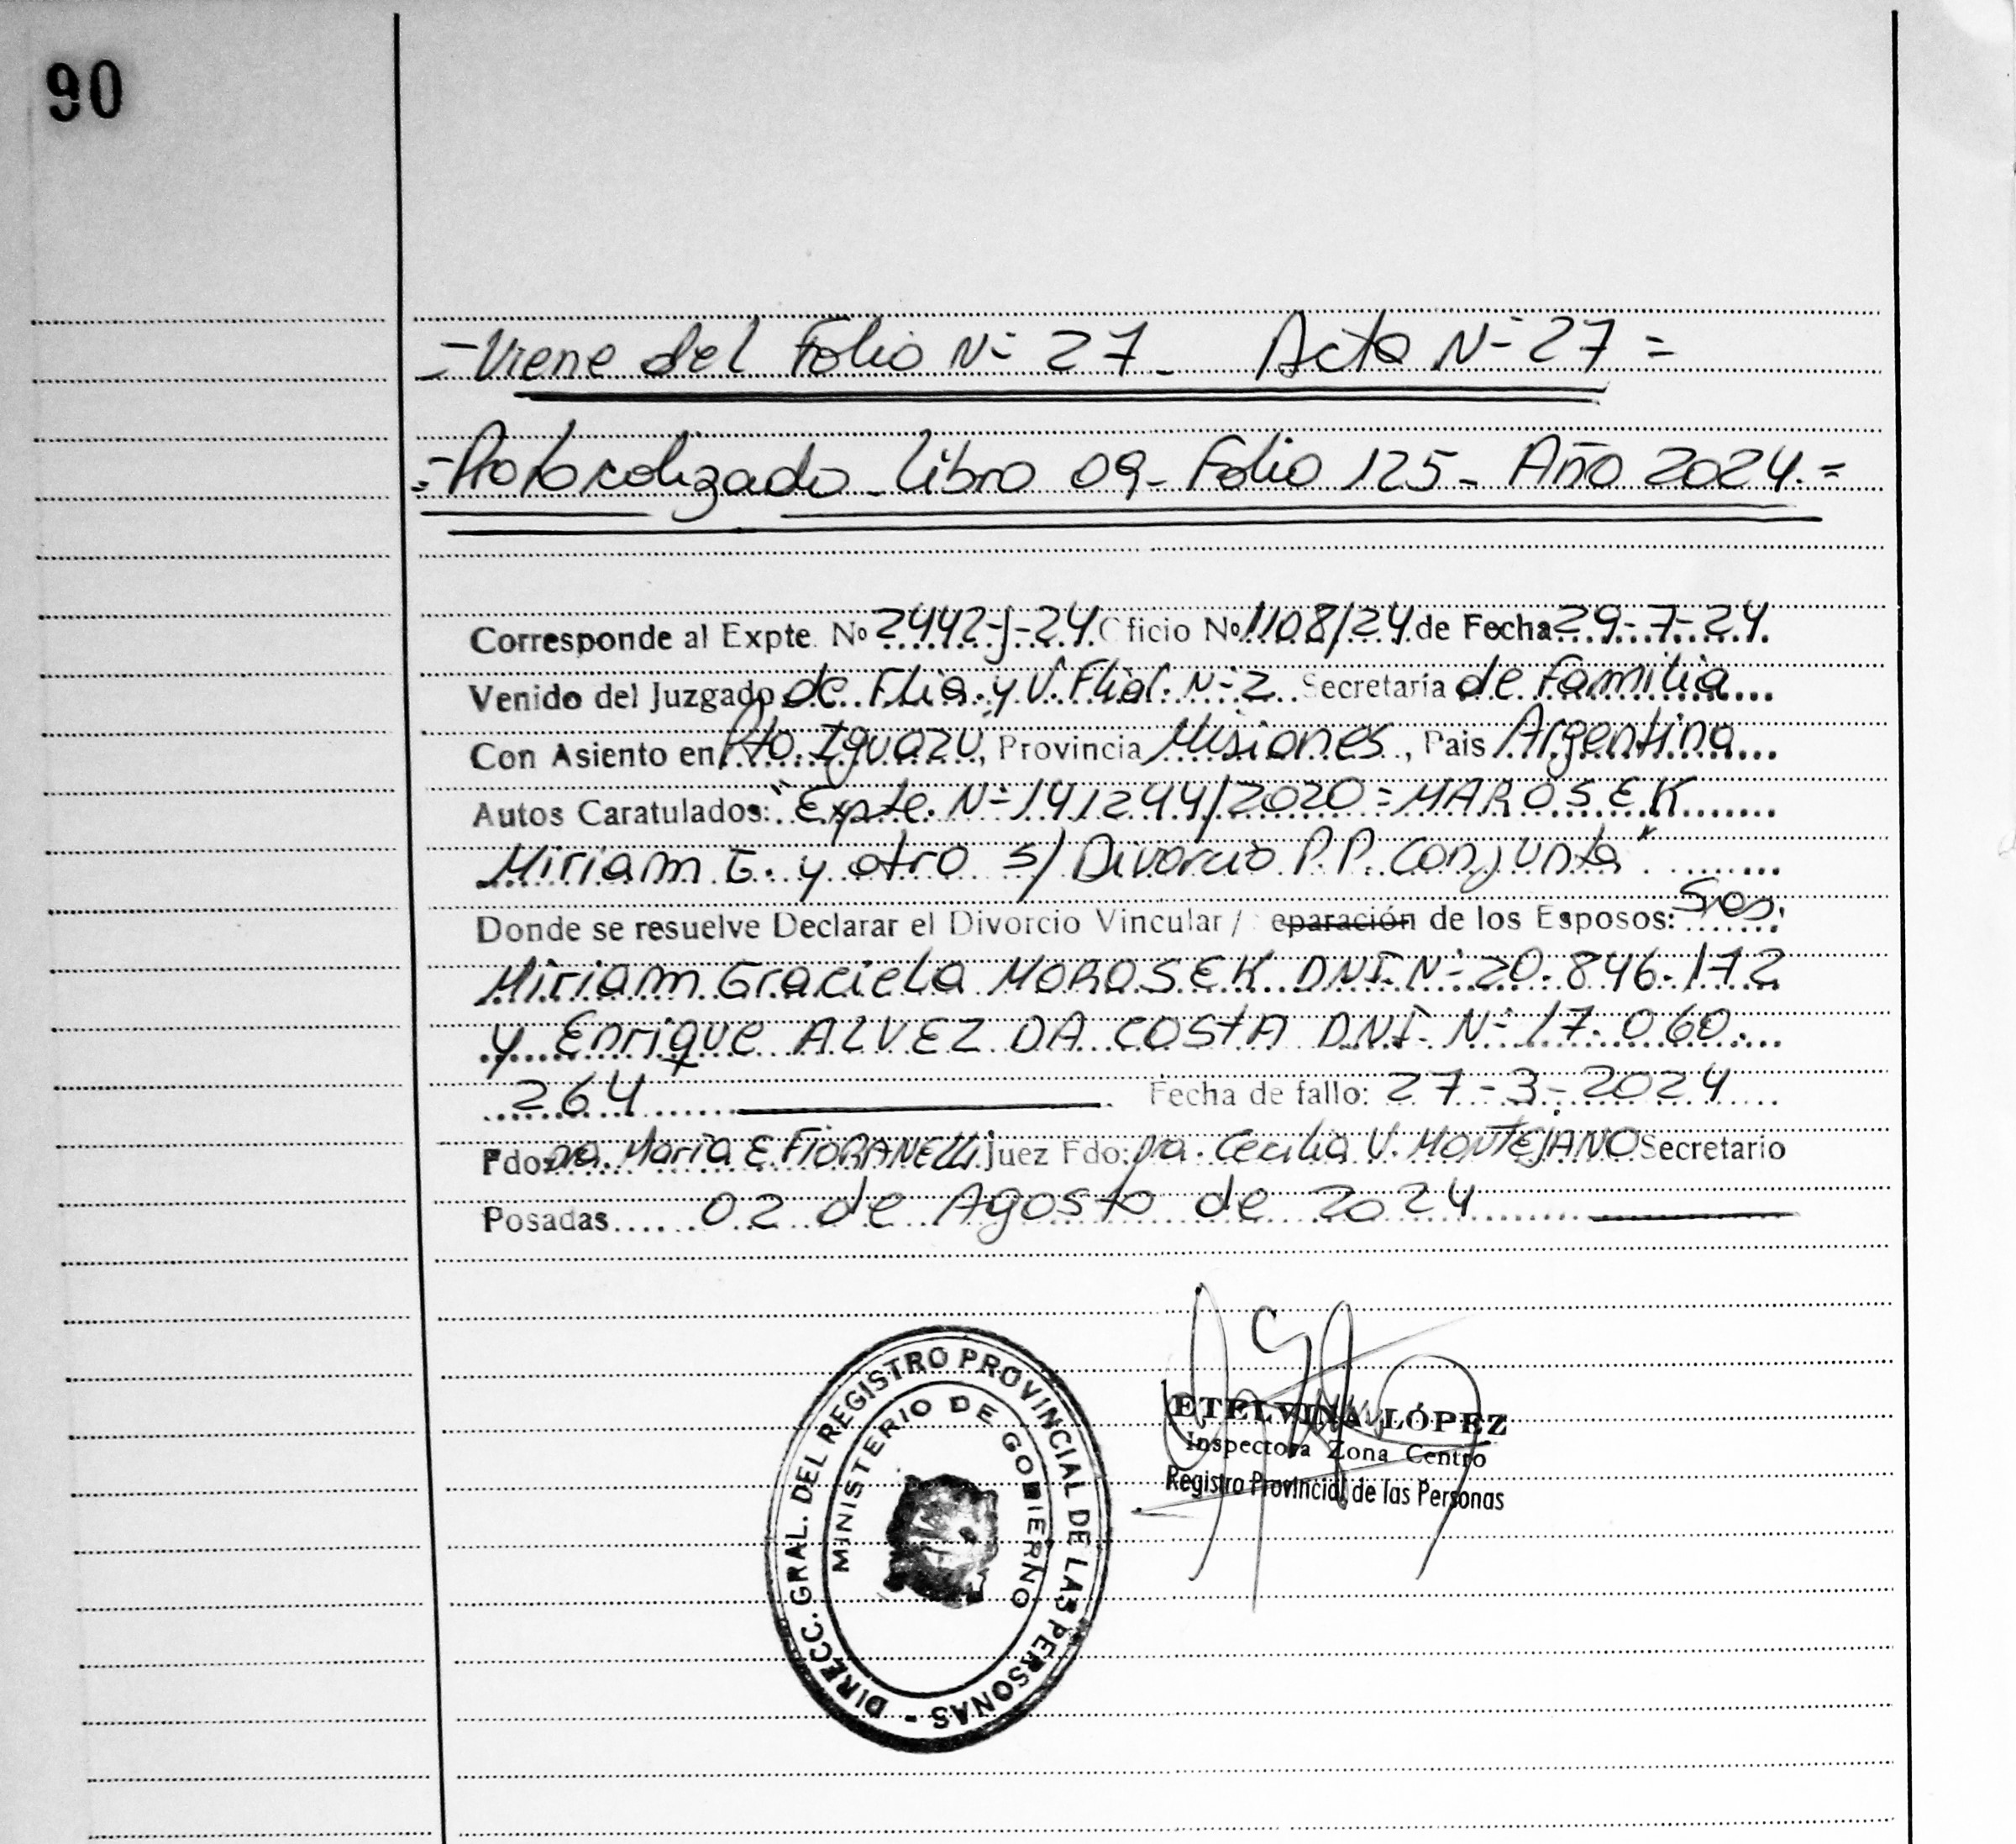 90
=Viene del Folio Nº 27_ Acta Nº 27=
=Protocolizado_Libro 09_Folio 125_Año 2024.=
Corresponde al Expte. Nº 2442-J-24. Oficio Nº 1108/24 de Fecha 29-7-24.
Venido del Juzgado de Flia. y V. Flial. Nº 2 Secretaría de Familia
Con Asiento en Pto. Iguazú, Provincia Misiones, Pais Argentina
Autos Caratulados: "Expte. Nº 141244/2020=MAROSEK
Miriam G. y otro s/ Divorcio P.P. Conjunta"
Donde se resuelve Declarar el Divorcio Vincular / Separación de los Esposos: Sres.
Miriam Graciela MOROSEK DNI. Nº 20.846.172
y Enrique ALVEZ DA COSTA DNI. Nº 17.060.
264 Fecha de fallo: 27-3-2024
Fdo: Dra. Maria E. FIORANELLI Juez Fdo: Dra. Cecilia V. MONTEJANO Secretario
Posadas 02 de Agosto de 2024
DIRECC. GRAL. DEL REGISTRO PROVINCIAL DE LAS PERSONAS -
MINISTERIO DE GOBIERNO
ETELVINA LÓPEZ
Inspectora Zona Centro
Registro Provincial de las Personas